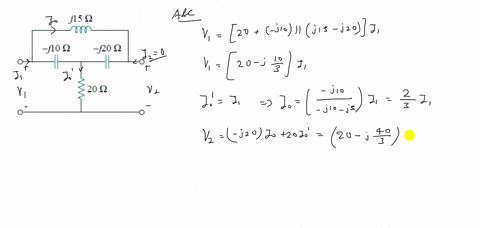 ABC
I₀ j15 Ω
-j10 Ω -j20 Ω I₂=0
I₁ + I₀' +
V₁ 20 Ω V₂
- -
V₁ = [20 + (-j10) || (j15 - j20)] I₁
V₁ = [20 - j 10/3] I₁
I₀' = I₁ ⇒ I₀ = (-j10/(-j10 - j5)) I₁ = 2/3 I₁
V₂ = (-j20) I₀ + 20 I₀' = (20 - j 40/3)